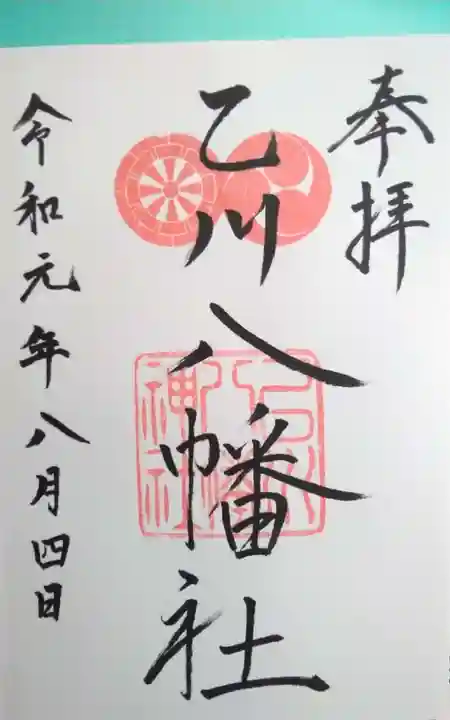 奉拝
乙川八幡社
令和元年八月四日